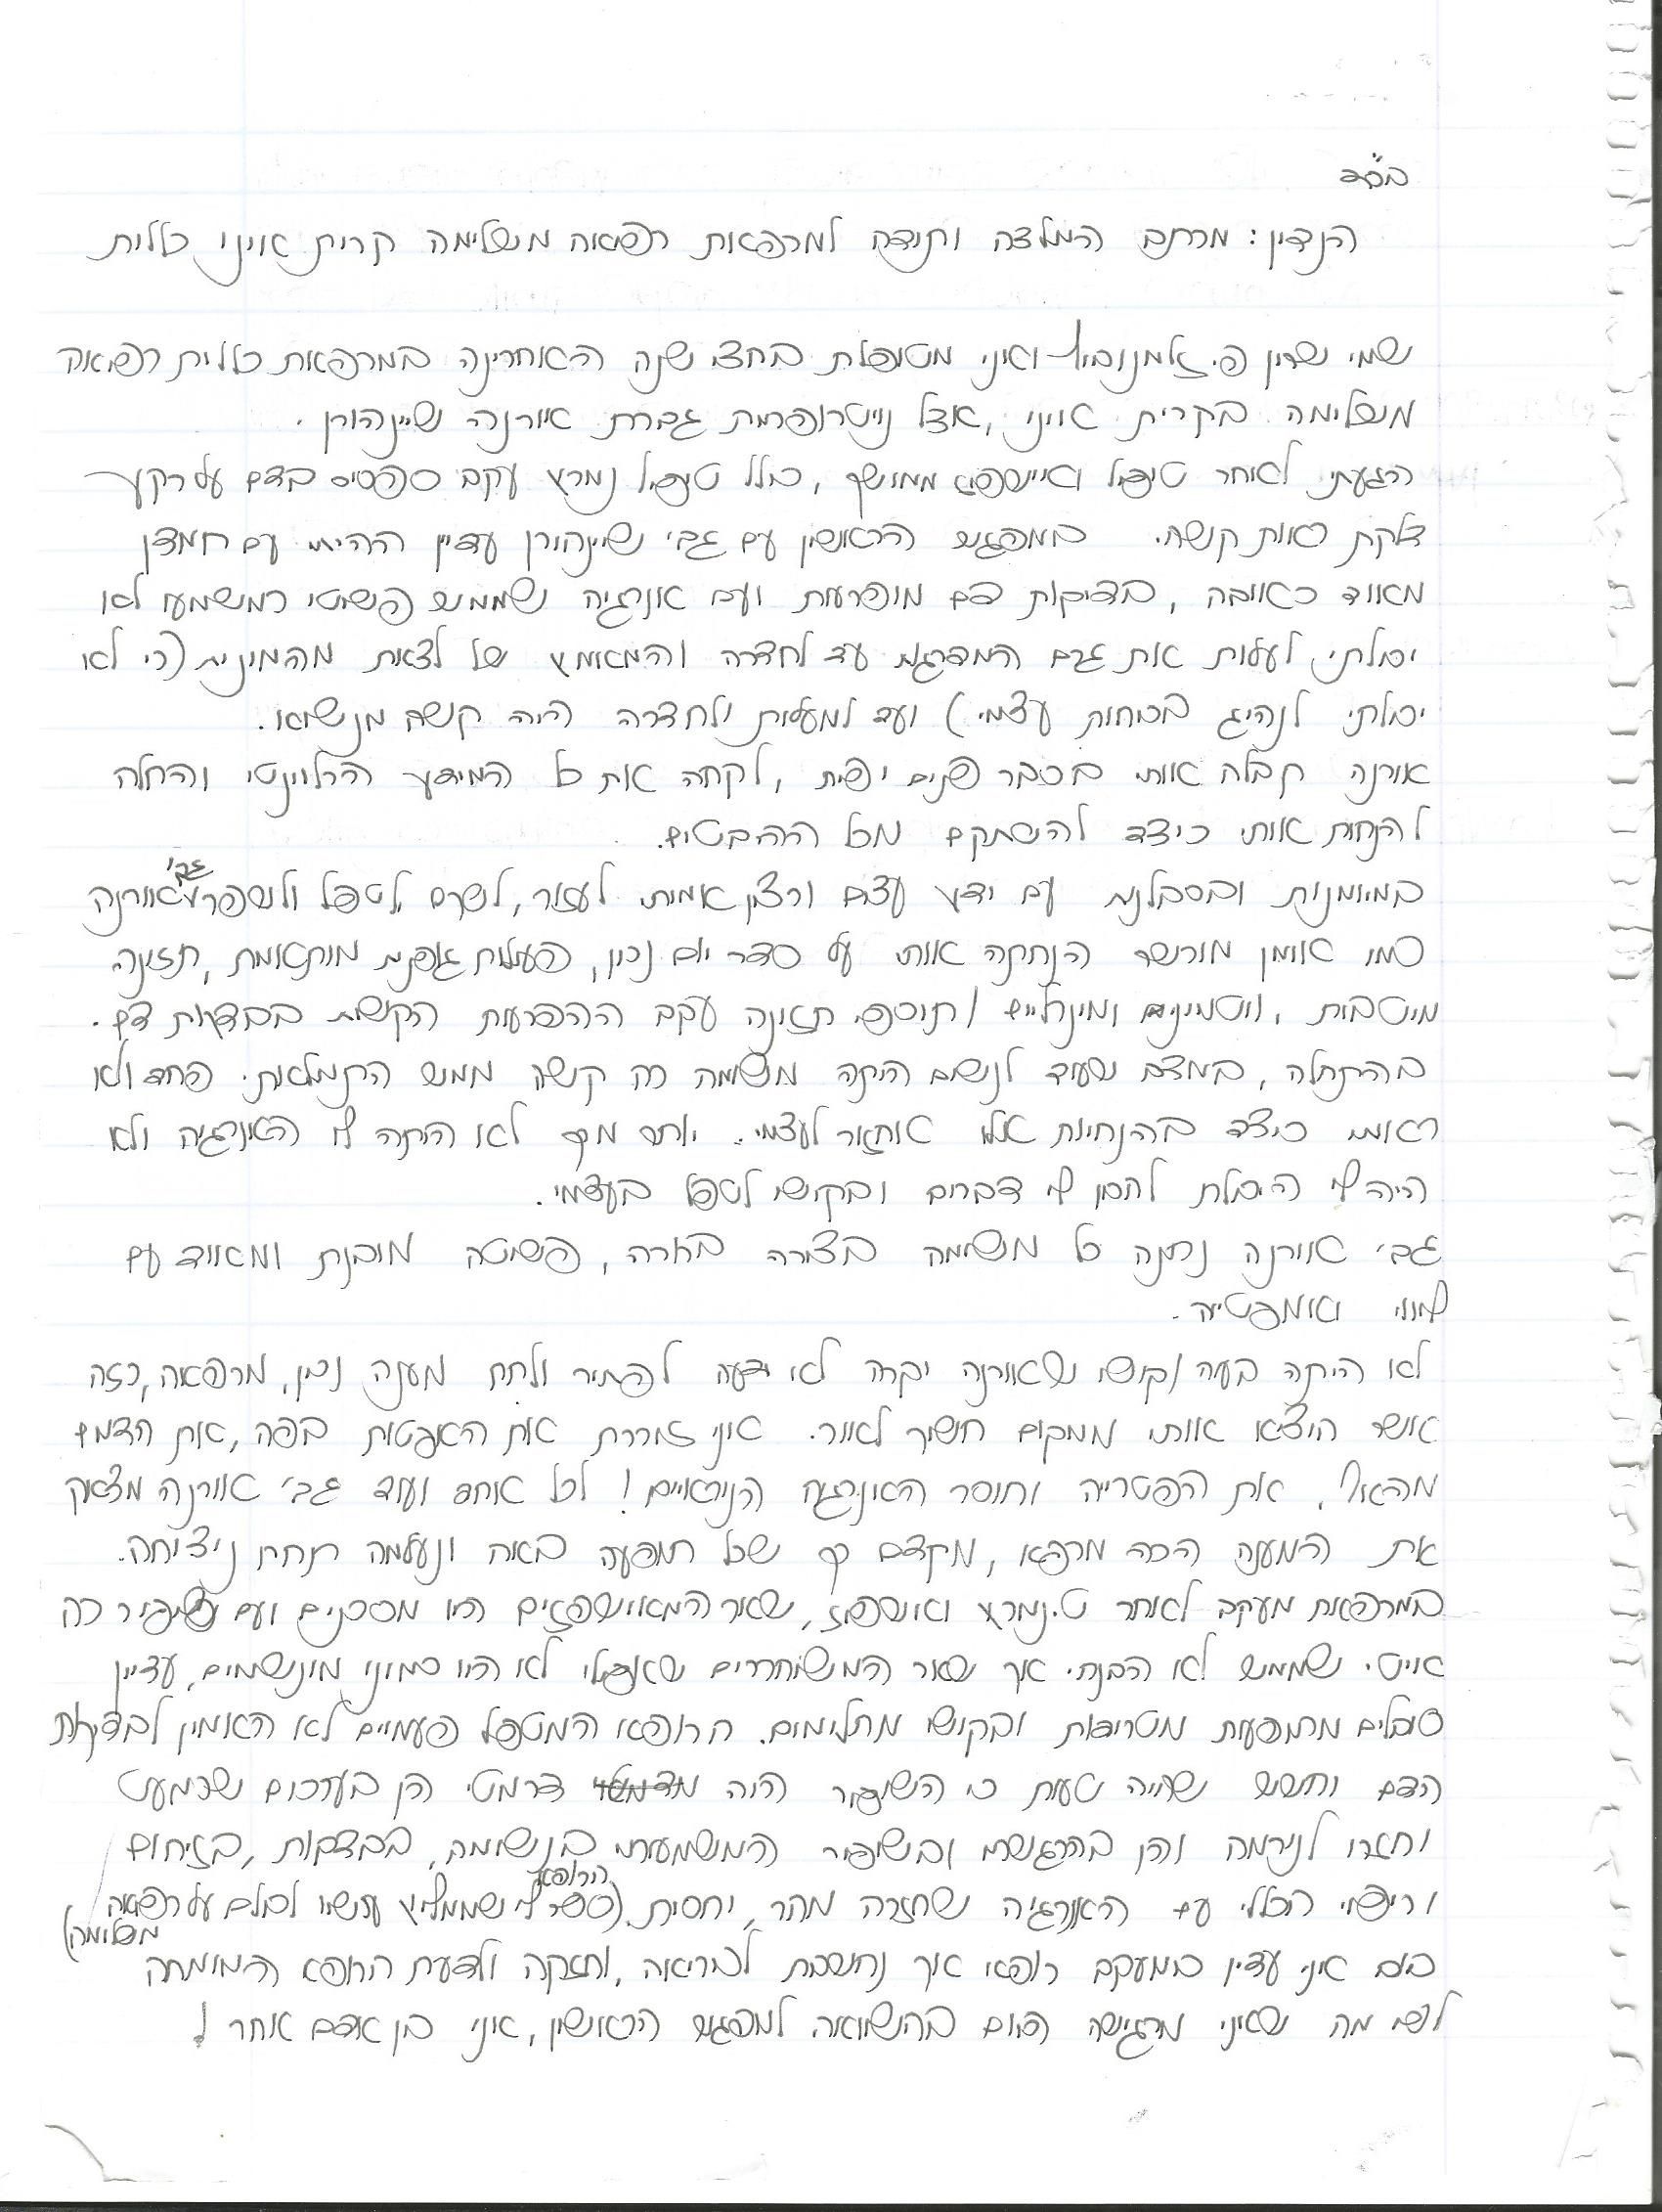 בס"ד
הנדון: מכתב המלצה ותודה למרפאת רפואה משלימה קרית אונו כללית
שמי שרון פ. ואני מטופלת בחצי שנה האחרונה במרפאת כללית רפואה
משלימה בקרית אונו, אצל נטורופתית גברת אורנה שיינהורן.
הגעתי לאחר טיפול ואישפוז ממושך, כולל טיפול נמרץ עקב ספסיס בדם על רקע
דלקת ריאות קשה. במפגש הראשון עם גב' שיינהורן עדיין הייתי עם חמצן
מאוד כאובה, בדיקות דם מופרעות ועם אנרגיה שממש פשוטו כמשמעו לא
יכולתי לעלות את גרם המדרגות עד לחדרה והמאמץ של לצאת מהמונית (כי לא
יכולתי לנהוג בכוחות עצמי) ועד למעלית ולחדרה היה קשה מנשוא.
אורנה קבלה אותי בסבר פנים יפות, לקחה את כל המידע הרלוונטי והחלה
להנחות אותי כיצד להשתקם מכל ההבטים.
במיומנות ובסבלנות עם ידע עצום ורצון אמיתי לעזור, לשקם לטפל ולשפר גב' אורנה
כמו אומן מוכשר הנחתה אותי על סדר יום נכון, פעילות גופנית מותאמת, תזונה
מיטבית, וויטמינים ומינרלים ותוספי תזונה עקב ההפרעות הקשות בבדיקות דם.
בהתחלה, במצב שעוד לנשום היתה משימה כה קשה ממש התמלאתי פחד ולא
ראיתי כיצד בהנחיות אלו אוחזר לעצמי. יותר מכך לא היתה לי האנרגיה ולא
היה לי היכולת להכין לי דברים ובקושי לטפל בעצמי.
גב' אורנה נתנה כל משימה בצורה ברורה, פשוטה מובנת ומאוד עם
ליווי ואמפטיה.
לא היתה בעיה וקושי שאורנה יקרה לא ידעה לפתור ולתת מענה נכון, מרפאה, כזה
אשר הוציא אותי ממקום חשוך לאור. אני זוכרת את האפטות בפה, את הדמם
מהאף, את הפטרייה וחוסר האנרגיה הנוראיים! לכל אחד ועוד גב' אורנה מצאה
את המענה הכה מרפא, מקדם כך שכל תופעה באה ונעלמה תחת ניצוחה.
במרפאת מעקב לאחר ט.נמרץ ואישפוז, שאר המאושפזים היו מסכנים ועם שיפור כה
איטי שממש לא הבנתי איך שאר המשוחררים שאפילו לא היו כמוני מונשמים, עדיין
סובלים מתופעות מטרידות ובקושי מחלימים. הרופא המטפל פעמיים לא האמין לבדיקות
הדם וחשש שהייה טעות כי השיפור היה דרמטי הן בערכים שכמעט
וחזרו לנורמה והן בהרגשתי ובשיפור המשמעותי בנשימה, בבדיקות, בזיהום
וריפוי הכללי עם האנרגיה שחזרה מהר יחסית. (סיפר לי הרופא שממליץ עכשיו לכולם על רפואה
משלימה)
כיום אני עדיין במעקב רופאי אך נחשבת לבריאה, וחזקה ולדעת הרופא המומחה
לפי מה שאני מרגישה היום בהשוואה למפגש הראשון, אני בן אדם אחר!